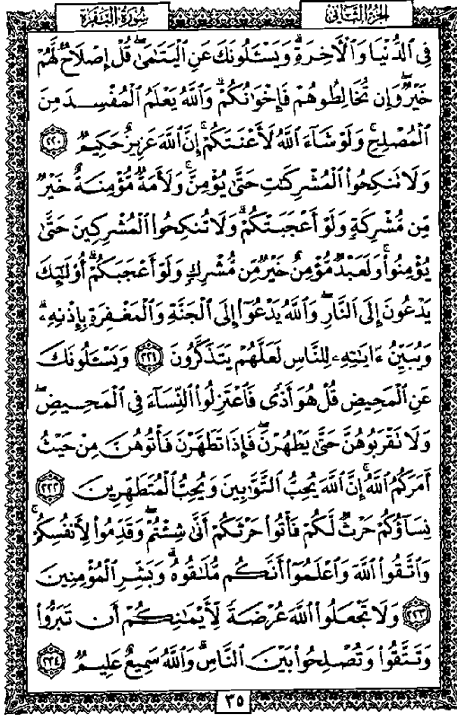 سُورَةُ البَقَرَةِ
الجزءُ الثَّانِي
فِي الدُّنْيَا وَالْآخِرَةِ ۗ وَيَسْـَٔلُونَكَ عَنِ الْيَتَٰمَىٰ ۖ قُلْ إِصْلَاحٌ لَّهُمْ
خَيْرٌ ۖ وَإِن تُخَالِطُوهُمْ فَإِخْوَٰنُكُمْ ۚ وَاللَّهُ يَعْلَمُ الْمُفْسِدَ مِنَ
الْمُصْلِحِ ۚ وَلَوْ شَآءَ اللَّهُ لَأَعْنَتَكُمْ ۚ إِنَّ اللَّهَ عَزِيزٌ حَكِيمٌ ﴿٢٢٠﴾
وَلَا تَنكِحُوا۟ الْمُشْرِكَٰتِ حَتَّىٰ يُؤْمِنَّ ۚ وَلَأَمَةٌ مُّؤْمِنَةٌ خَيْرٌ
مِّن مُّشْرِكَةٍ وَلَوْ أَعْجَبَتْكُمْ ۗ وَلَا تُنكِحُوا۟ الْمُشْرِكِينَ حَتَّىٰ
يُؤْمِنُوا۟ ۚ وَلَعَبْدٌ مُّؤْمِنٌ خَيْرٌ مِّن مُّشْرِكٍ وَلَوْ أَعْجَبَكُمْ ۗ أُو۟لَٰٓئِكَ
يَدْعُونَ إِلَى النَّارِ ۖ وَاللَّهُ يَدْعُوٓا۟ إِلَى الْجَنَّةِ وَالْمَغْفِرَةِ بِإِذْنِهِۦ ۖ
وَيُبَيِّنُ ءَايَٰتِهِۦ لِلنَّاسِ لَعَلَّهُمْ يَتَذَكَّرُونَ ﴿٢٢١﴾ وَيَسْـَٔلُونَكَ
عَنِ الْمَحِيضِ ۖ قُلْ هُوَ أَذًى فَاعْتَزِلُوا۟ النِّسَآءَ فِي الْمَحِيضِ ۖ
وَلَا تَقْرَبُوهُنَّ حَتَّىٰ يَطْهُرْنَ ۖ فَإِذَا تَطَهَّرْنَ فَأْتُوهُنَّ مِنْ حَيْثُ
أَمَرَكُمُ اللَّهُ ۚ إِنَّ اللَّهَ يُحِبُّ التَّوَّٰبِينَ وَيُحِبُّ الْمُتَطَهِّرِينَ ﴿٢٢٢﴾
نِسَآؤُكُمْ حَرْثٌ لَّكُمْ فَأْتُوا۟ حَرْثَكُمْ أَنَّىٰ شِئْتُمْ ۖ وَقَدِّمُوا۟ لِأَنفُسِكُمْ ۚ
وَاتَّقُوا۟ اللَّهَ وَاعْلَمُوٓا۟ أَنَّكُم مُّلَٰقُوهُ ۗ وَبَشِّرِ الْمُؤْمِنِينَ
﴿٢٢٣﴾ وَلَا تَجْعَلُوا۟ اللَّهَ عُرْضَةً لِّأَيْمَٰنِكُمْ أَن تَبَرُّوا۟
وَتَتَّقُوا۟ وَتُصْلِحُوا۟ بَيْنَ النَّاسِ ۗ وَاللَّهُ سَمِيعٌ عَلِيمٌ ﴿٢٢٤﴾
٣٥